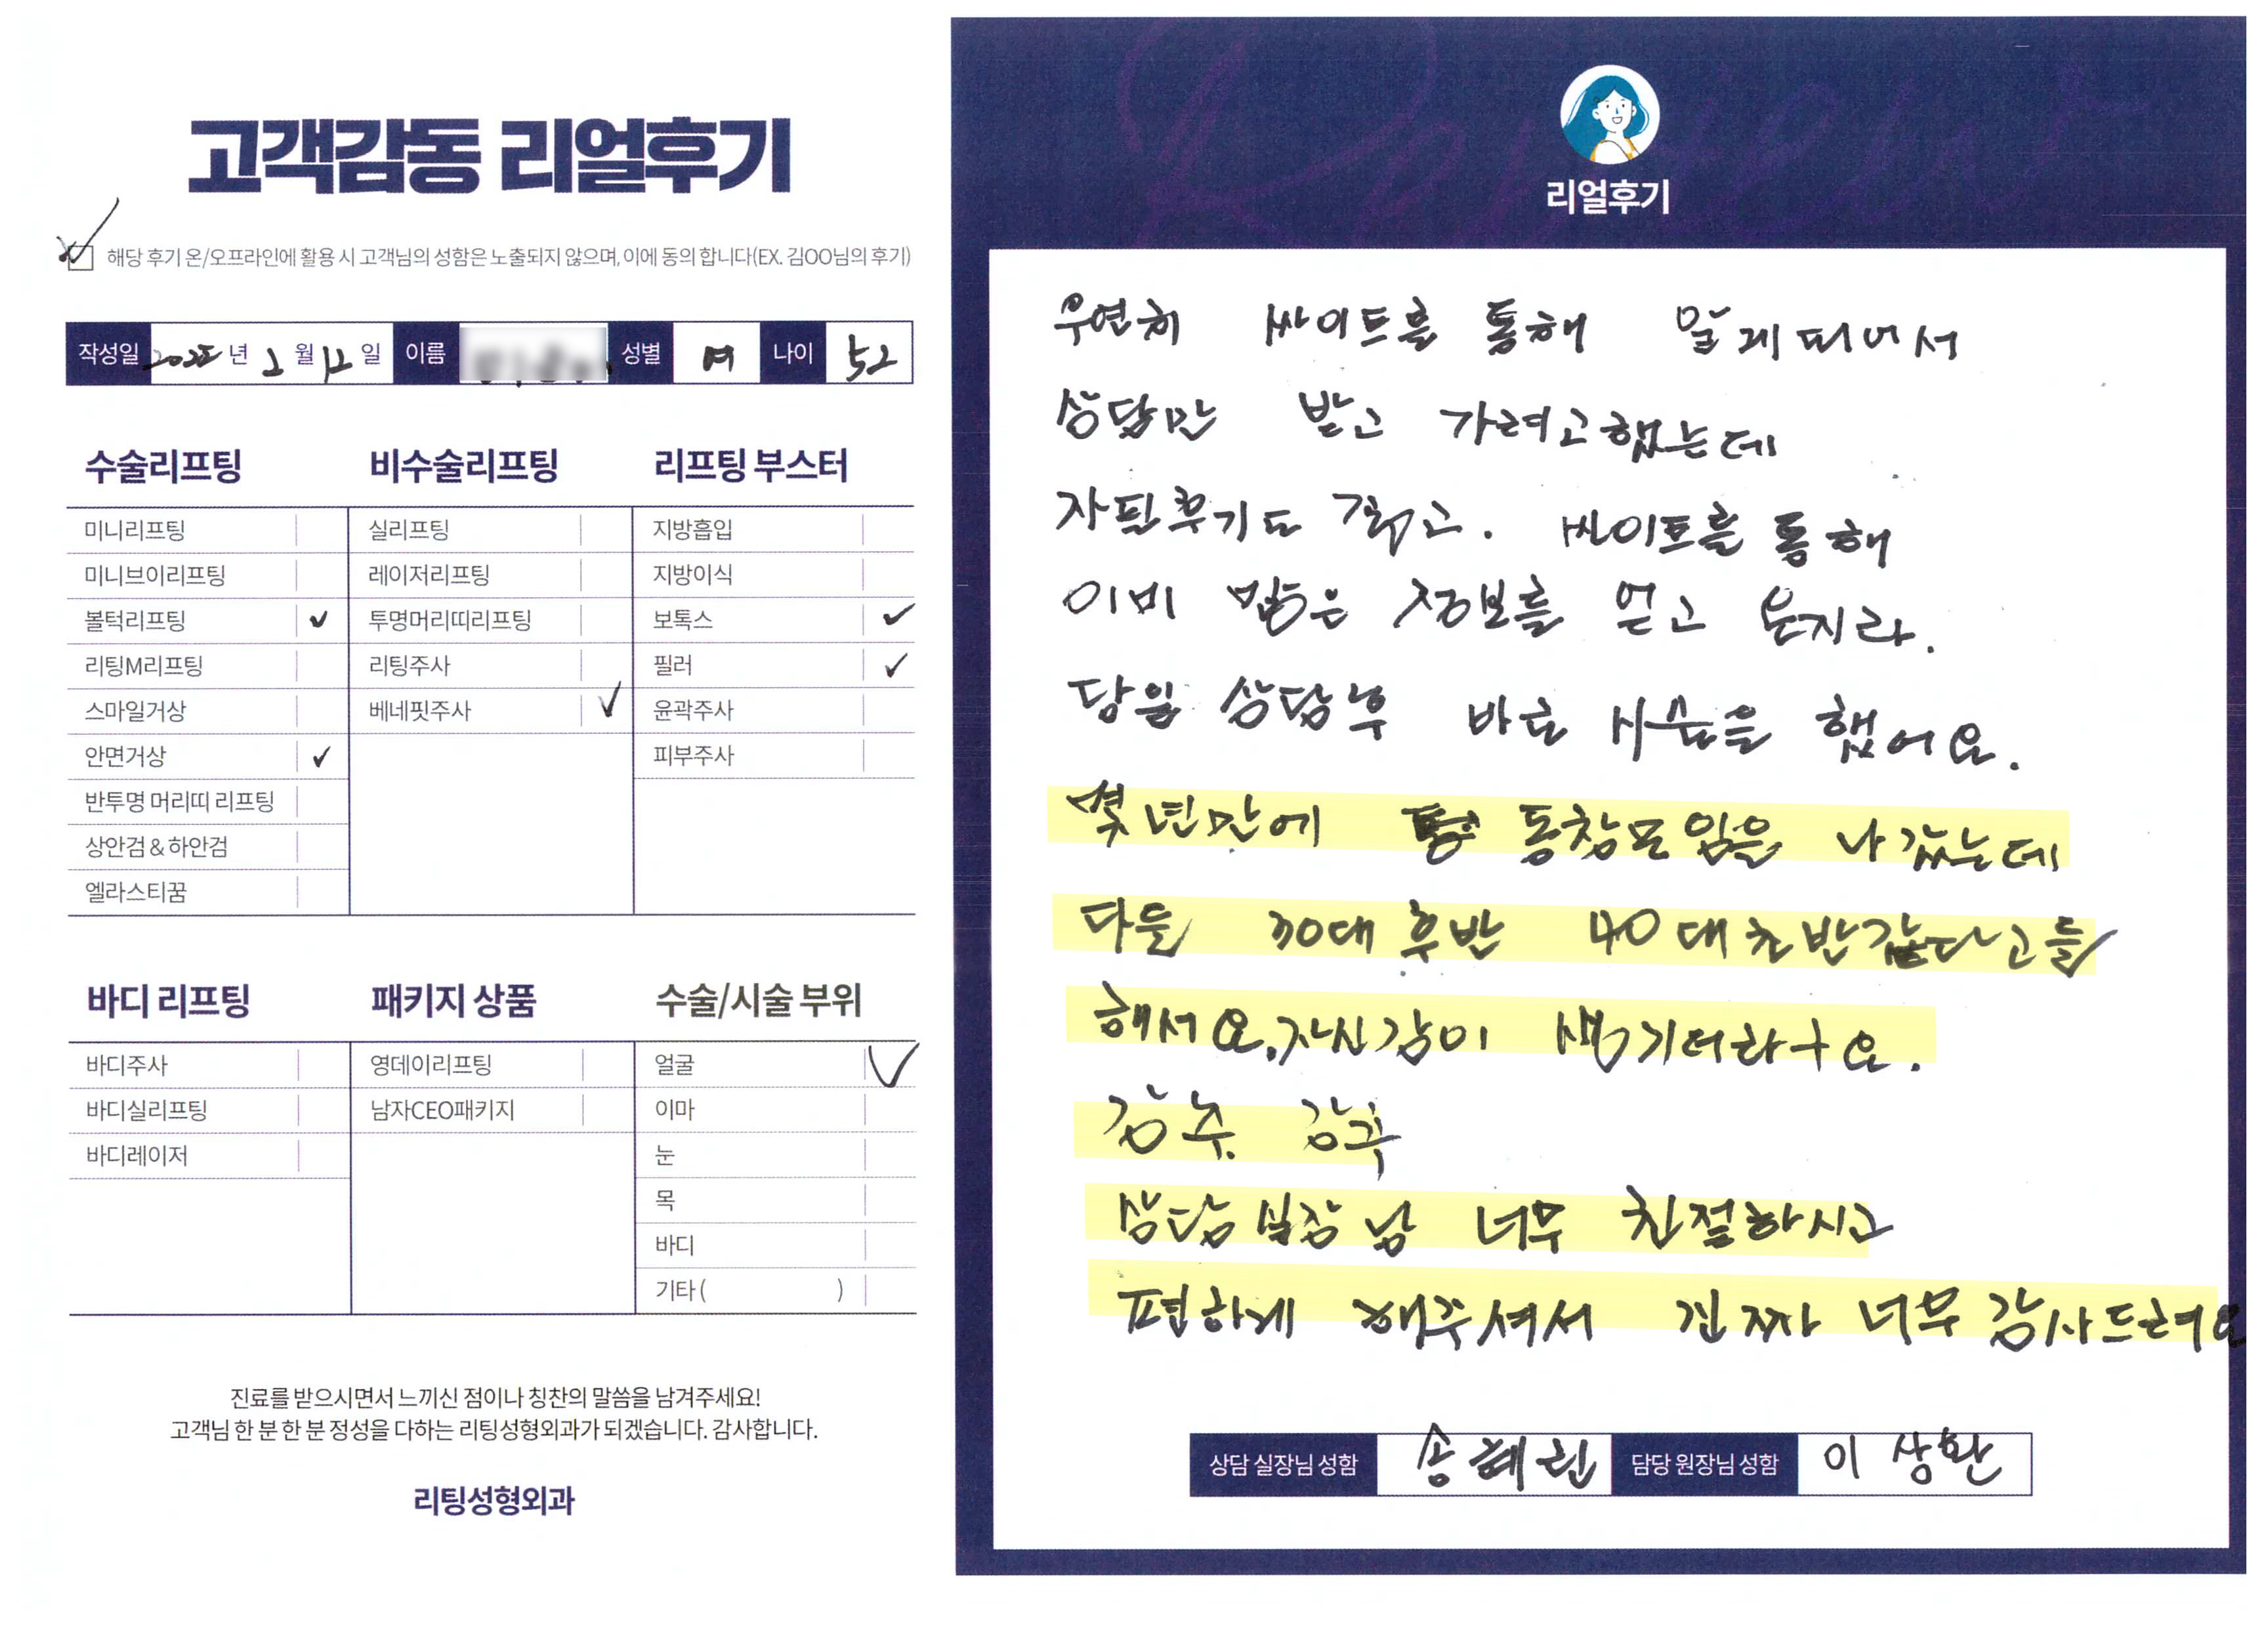 고객감동 리얼후기
해당 후기 온/오프라인에 활용 시 고객님의 성함은 노출되지 않으며, 이에 동의 합니다(EX. 김OO님의 후기)
작성일 2025년 2월 12일 이름 성별 여 나이 52
수술리프팅
미니리프팅
미니브이리프팅
볼턱리프팅 ✓
리팅M리프팅
스마일거상
안면거상 ✓
반투명 머리띠 리프팅
상안검 & 하안검
엘라스티꿈
비수술리프팅
실리프팅
레이저리프팅
투명머리띠리프팅
리팅주사
베네핏주사 ✓
리프팅 부스터
지방흡입
지방이식
보톡스 ✓
필러 ✓
윤곽주사
피부주사
바디 리프팅
바디주사
바디실리프팅
바디레이저
패키지 상품
영데이리프팅
남자CEO패키지
수술/시술 부위
얼굴 ✓
이마
눈
목
바디
기타 ( )
진료를 받으시면서 느끼신 점이나 칭찬의 말씀을 남겨주세요!
고객님 한 분 한 분 정성을 다하는 리팅성형외과가 되겠습니다. 감사합니다.
리팅성형외과
리얼후기
우연히 싸이트를 통해 알게 되어서
상담만 받고 가려고했는데
자필후기도 적고. 싸이트를 통해
이미 많은 정보를 얻고 온지라.
당일 상담후 바로 시술을 했어요.
몇 년만에 동창모임을 나갔는데
다들 30대 후반 40대초반같다고들
해서요. 자신감이 생기더라구요.
강추 강추
상담실장님 너무 친절하시고
편하게 해주셔서 진짜 너무 감사드려요
상담 실장님 성함 송혜린 담당 원장님 성함 이상환